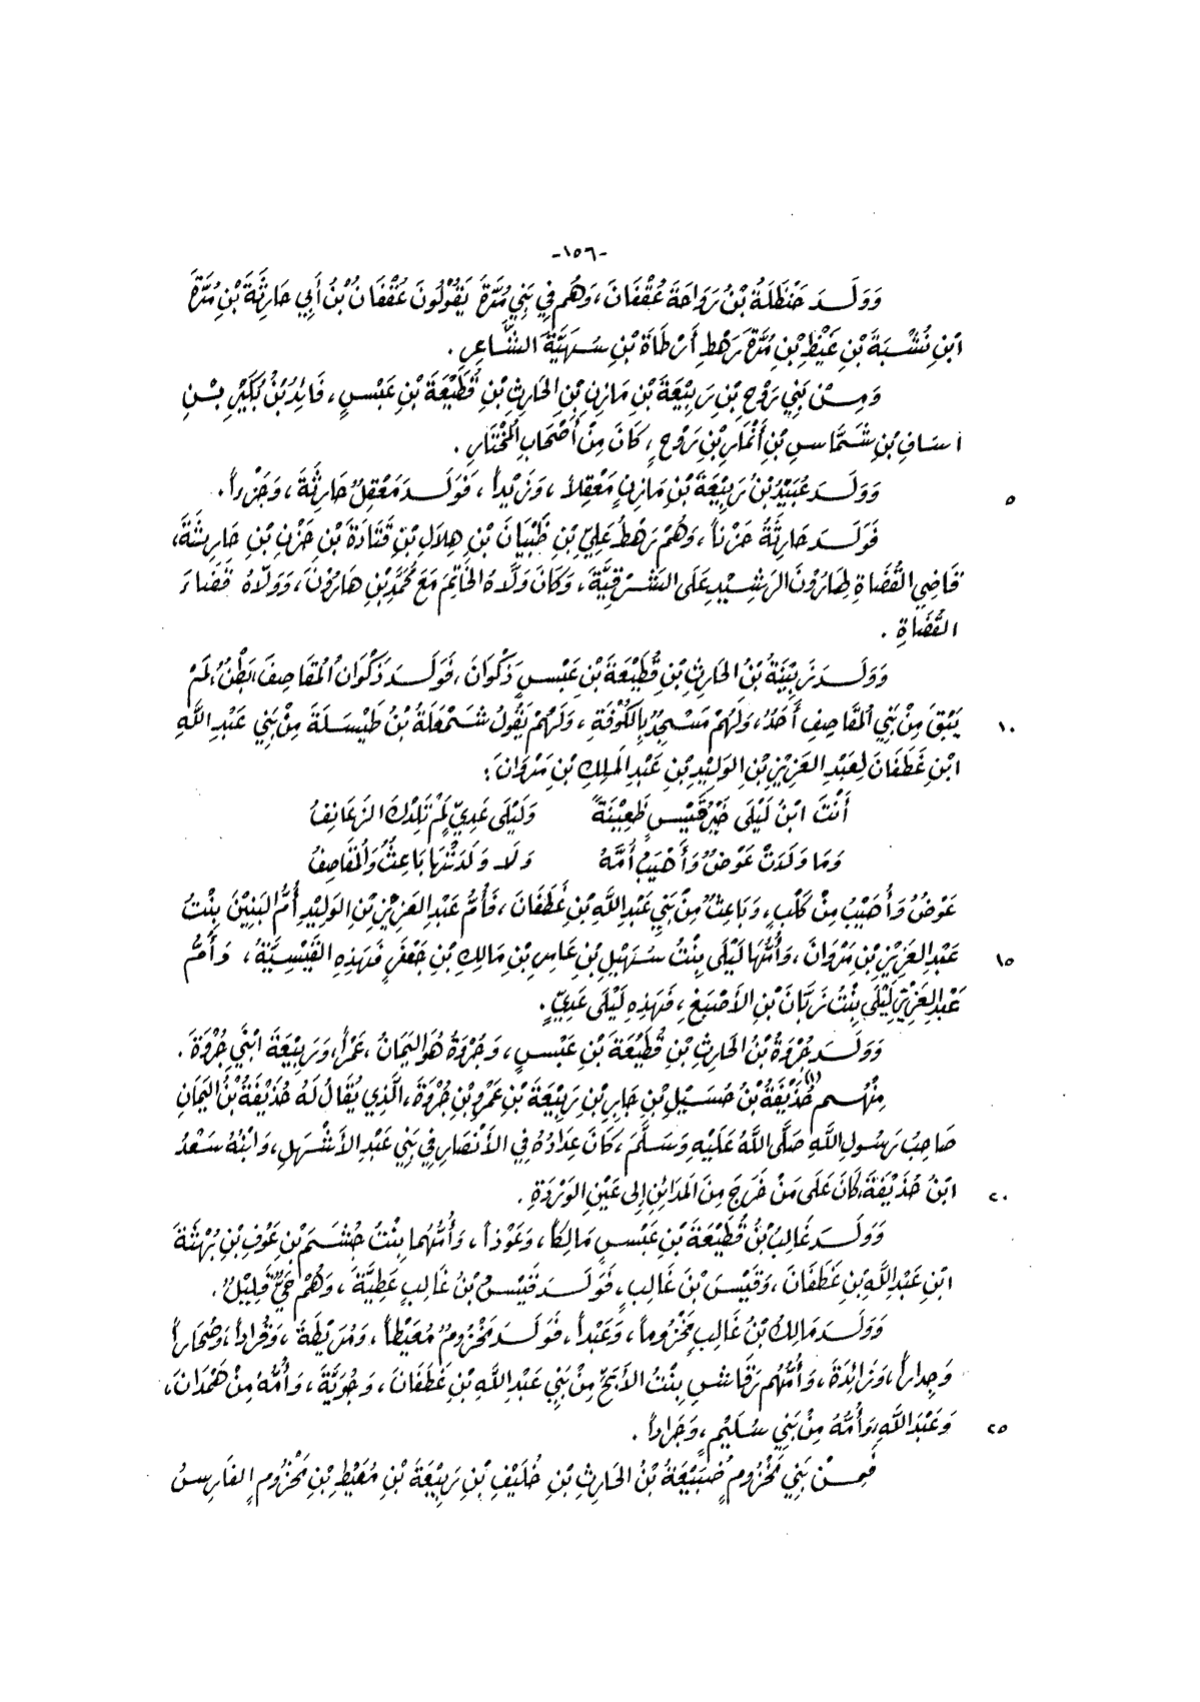 -١٥٦-
وَوَلَدَ حَنْظَلَةُ بْنُ رَوَاحَةَ عُقْفَانَ، وَهُم فِي بَنِي مُرَّةَ يَقُولُونَ عُقْفَانُ بْنُ أَبِي حَارِثَةَ بْنِ مُرَّةَ
ابْنِ نُشْبَةَ بْنِ غَيْظِ بْنِ مُرَّةَ رَهْطِ أَرْطَاةَ بْنِ سُهَيَّةَ الشَّاعِرِ .
وَمِنْ بَنِي رَوْحِ بْنِ رَبِيْعَةَ بْنِ مَازِنِ بْنِ الحَارِثِ بْنِ قُطَيْعَةَ بْنِ عَبْسٍ، قَائِدُ بْنُ بُكَيْرِ بْنِ
اسَافِ بْنِ شَمَّاسِ بْنِ أَنْمَارِ بْنِ رَوْحٍ، كَانَ مِنْ أَصْحَابِ المُخْتَارِ .
٥ وَوَلَدَ عُبَيْدُ بْنُ رَبِيْعَةَ بْنِ مَازِنٍ مَعْقِلاً، وَزَيْداً، فَوَلَدَ مَعْقِلٌ حَارِثَةَ، وَجَزْءاً .
فَوَلَدَ حَارِثَةُ حَزْناً، وَهُمْ رَهْطُ عَلِيِّ بْنِ ظَبْيَانَ بْنِ هِلَالِ بْنِ قَتَادَةَ بْنِ حَزْنِ بْنِ حَارِثَةَ،
قَاضِي القُضَاةِ لِهَارُوْنَ الرَشِيْدِ عَلَى الشَرْقِيَّةِ، وَكَانَ وَلَّاهُ الخَاتِمَ مَعَ مُحَمَّدِ بْنِ هَارُوْنَ، وَوَلَّاهُ قَضَاءَ
القُضَاةِ .
وَوَلَدَ زَبِيْنَةُ بْنُ الحَارِثِ بْنِ قُطَيْعَةَ بْنِ عَبْسٍ ذَكْوَانَ، فَوَلَدَ ذَكْوَانُ المُقَاصِفَ، بَطْنٌ، لَمْ
١٠ يَبْقَ مِنْ بَنِي المُقَاصِفِ أَحَدٌ، وَلَهُمْ مَسْجِدٌ بِالكُوْفَةِ، وَلَهُمْ يَقُولُ شَمْعَلَةُ بْنُ طَيْسَلَةَ مِنْ بَنِي عَبْدِ اللَّهِ
ابْنِ غَطَفَانَ لِعَبْدِ العَزِيْزِ بْنِ الوَلِيْدِ بْنِ عَبْدِ المَلِكِ بْنِ مَرْوَانَ :
أَنْتَ ابْنُ لَيْلَى خَيْرُ قَيْسٍ ظَعِيْنَةً وَلَيْلَى عَدِيٍّ لَمْ تَلِدْكَ الزَعَانِفُ
وَمَا وَلَدَتْ عَوْضٌ وَأَهْيَبُ أُمَّهُ وَلَا وَلَدَتْهَا بَاعِثٌ وَالمُقَاصِفُ
عَوْضٌ وَأُهَيْبُ مِنْ كَلْبٍ، وَبَاعِثٌ مِنْ بَنِي عَبْدِ اللَّهِ بْنِ غَطَفَانَ، فَأُمُّ عَبْدِ العَزِيْزِ بْنِ الوَلِيْدِ أُمُّ البَنِيْنَ بِنْتُ
١٥ عَبْدِ العَزِيْزِ بْنِ مَرْوَانَ، وَأُمُّهَا لَيْلَى بِنْتُ سُهَيْلِ بْنِ عَامِرِ بْنِ مَالِكِ بْنِ جَعْفَرٍ فَهَذِهِ القَيْسِيَّةُ، وَأُمُّ
عَبْدِ العَزِيْزِ لَيْلَى بِنْتُ زَبَّانَ بْنِ الأَصْبَغِ، فَهَذِهِ لَيْلَى عَدِيٍّ .
وَوَلَدَ جُرْوَةُ بْنُ الحَارِثِ بْنِ قُطَيْعَةَ بْنِ عَبْسٍ، وَجُرْوَةُ هُوَ اليَمَانُ، عَمْراً، وَرَبِيْعَةَ ابْنَي جُرْوَةَ .
مِنْهُم (١) حُذَيْفَةُ بْنُ حُسَيْلِ بْنِ جَابِرِ بْنِ رَبِيْعَةَ بْنِ عَمْرِو بْنِ جُرْوَةَ، الَّذِي يُقَالُ لَهُ حُذَيْفَةُ بْنُ اليَمَانِ
صَاحِبُ رَسُولِ اللَّهِ صَلَّى اللَّهُ عَلَيْهِ وَسَلَّمَ، كَانَ عِدَادُهُ فِي الأَنْصَارِ فِي بَنِي عَبْدِ الأَشْهَلِ، وَابْنُهُ سَعْدُ
٢٠ ابْنُ حُذَيْفَةَ كَانَ عَلَى مَنْ خَرَجَ مِنَ المَدَائِنِ إِلَى عَيْنِ الوَرْدَةِ .
وَوَلَدَ غَالِبُ بْنُ قُطَيْعَةَ بْنِ عَبْسٍ مَالِكاً، وَعَوْذاً، وَأُمُّهُمَا بِنْتُ جُشَمَ بْنِ عَوْفِ بْنِ بُهْثَةَ
ابْنِ عَبْدِ اللَّهِ بْنِ غَطَفَانَ، وَقَيْسَ بْنَ غَالِبٍ، فَوَلَدَ قَيْسُ بْنُ غَالِبٍ عَطِيَّةَ، وَهُمْ حَيٌّ قَلِيْلٌ .
وَوَلَدَ مَالِكُ بْنُ غَالِبٍ مَخْزُوماً، وَعَبْداً، فَوَلَدَ مَخْزُومٌ مُعَيْطاً، وَمُرَيْطَةَ، وَقُرَاداً، وَصُحَاراً
وَجِدَاراً، وَزَائِدَةَ، وَأُمُّهُم رَقَاشِ بِنْتُ الأَبَحِّ مِنْ بَنِي عَبْدِ اللَّهِ بْنِ غَطَفَانَ، وَجُوَيَّةَ، وَأُمُّهُ مِنْ هَمْدَانَ،
٢٥ وَعَبْدَ اللَّهِ وَأُمُّهُ مِنْ بَنِي سُلَيْمٍ، وَجَرَاداً .
فَمِنْ بَنِي مَخْزُومٍ ضُبَيْعَةُ بْنُ الحَارِثِ بْنِ خُلَيْفِ بْنِ رَبِيْعَةَ بْنِ مُعَيْطِ بْنِ مَخْزُومٍ الفَارِسُ